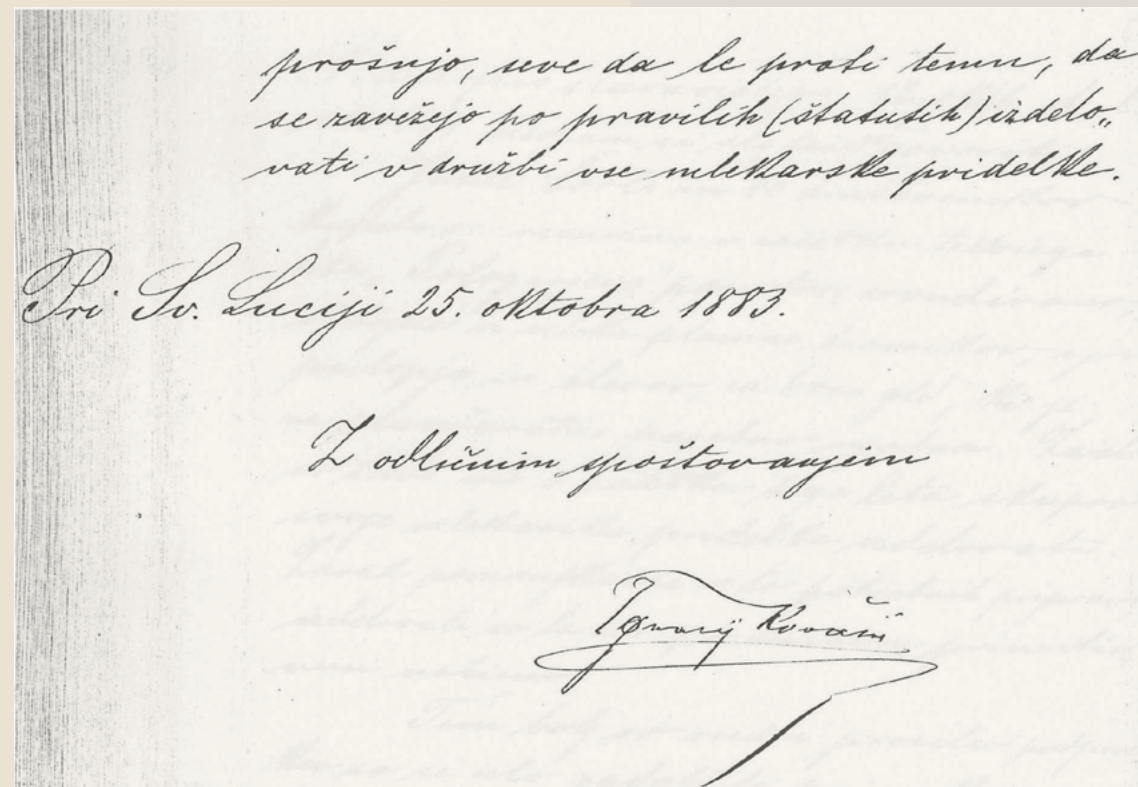 prošnjo, seve da le proti temu, da
se zavežejo po pravilih (štatutih) izdelo„
vati v družbi vse mlekarske pridelke.
Pri Sv. Luciji 25. oktobra 1883.
Z odličnim spoštovanjem
Ignacij Kovačič